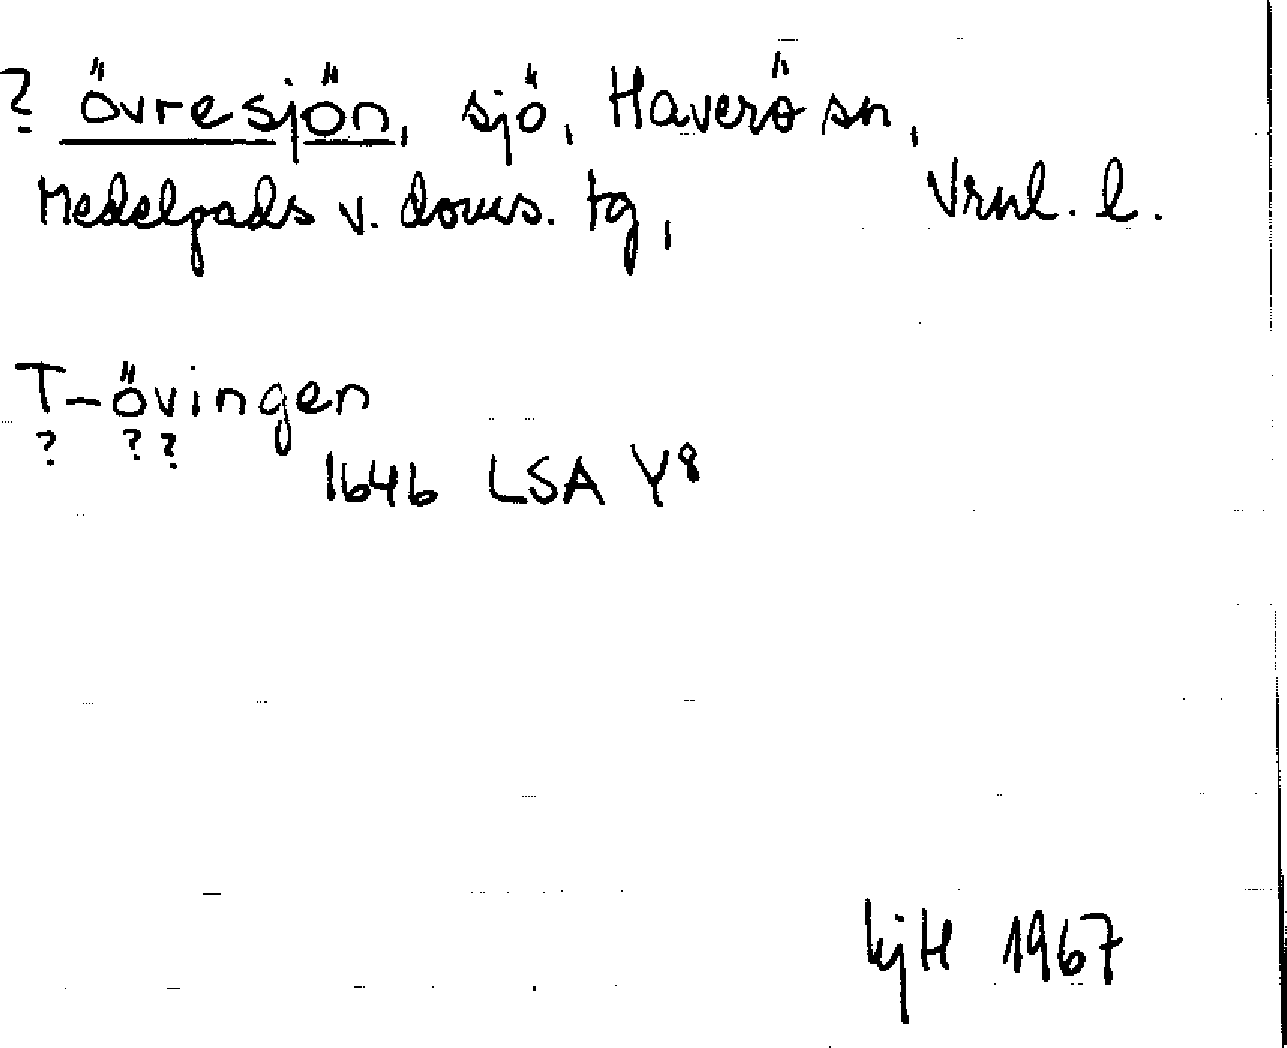 ? Övresjön, sjö, Haverö sn,
Medelpads v. doms. tg, Vrnl. l.
T-övingen
? ? ?
1646 LSA Y8
hjH 1967